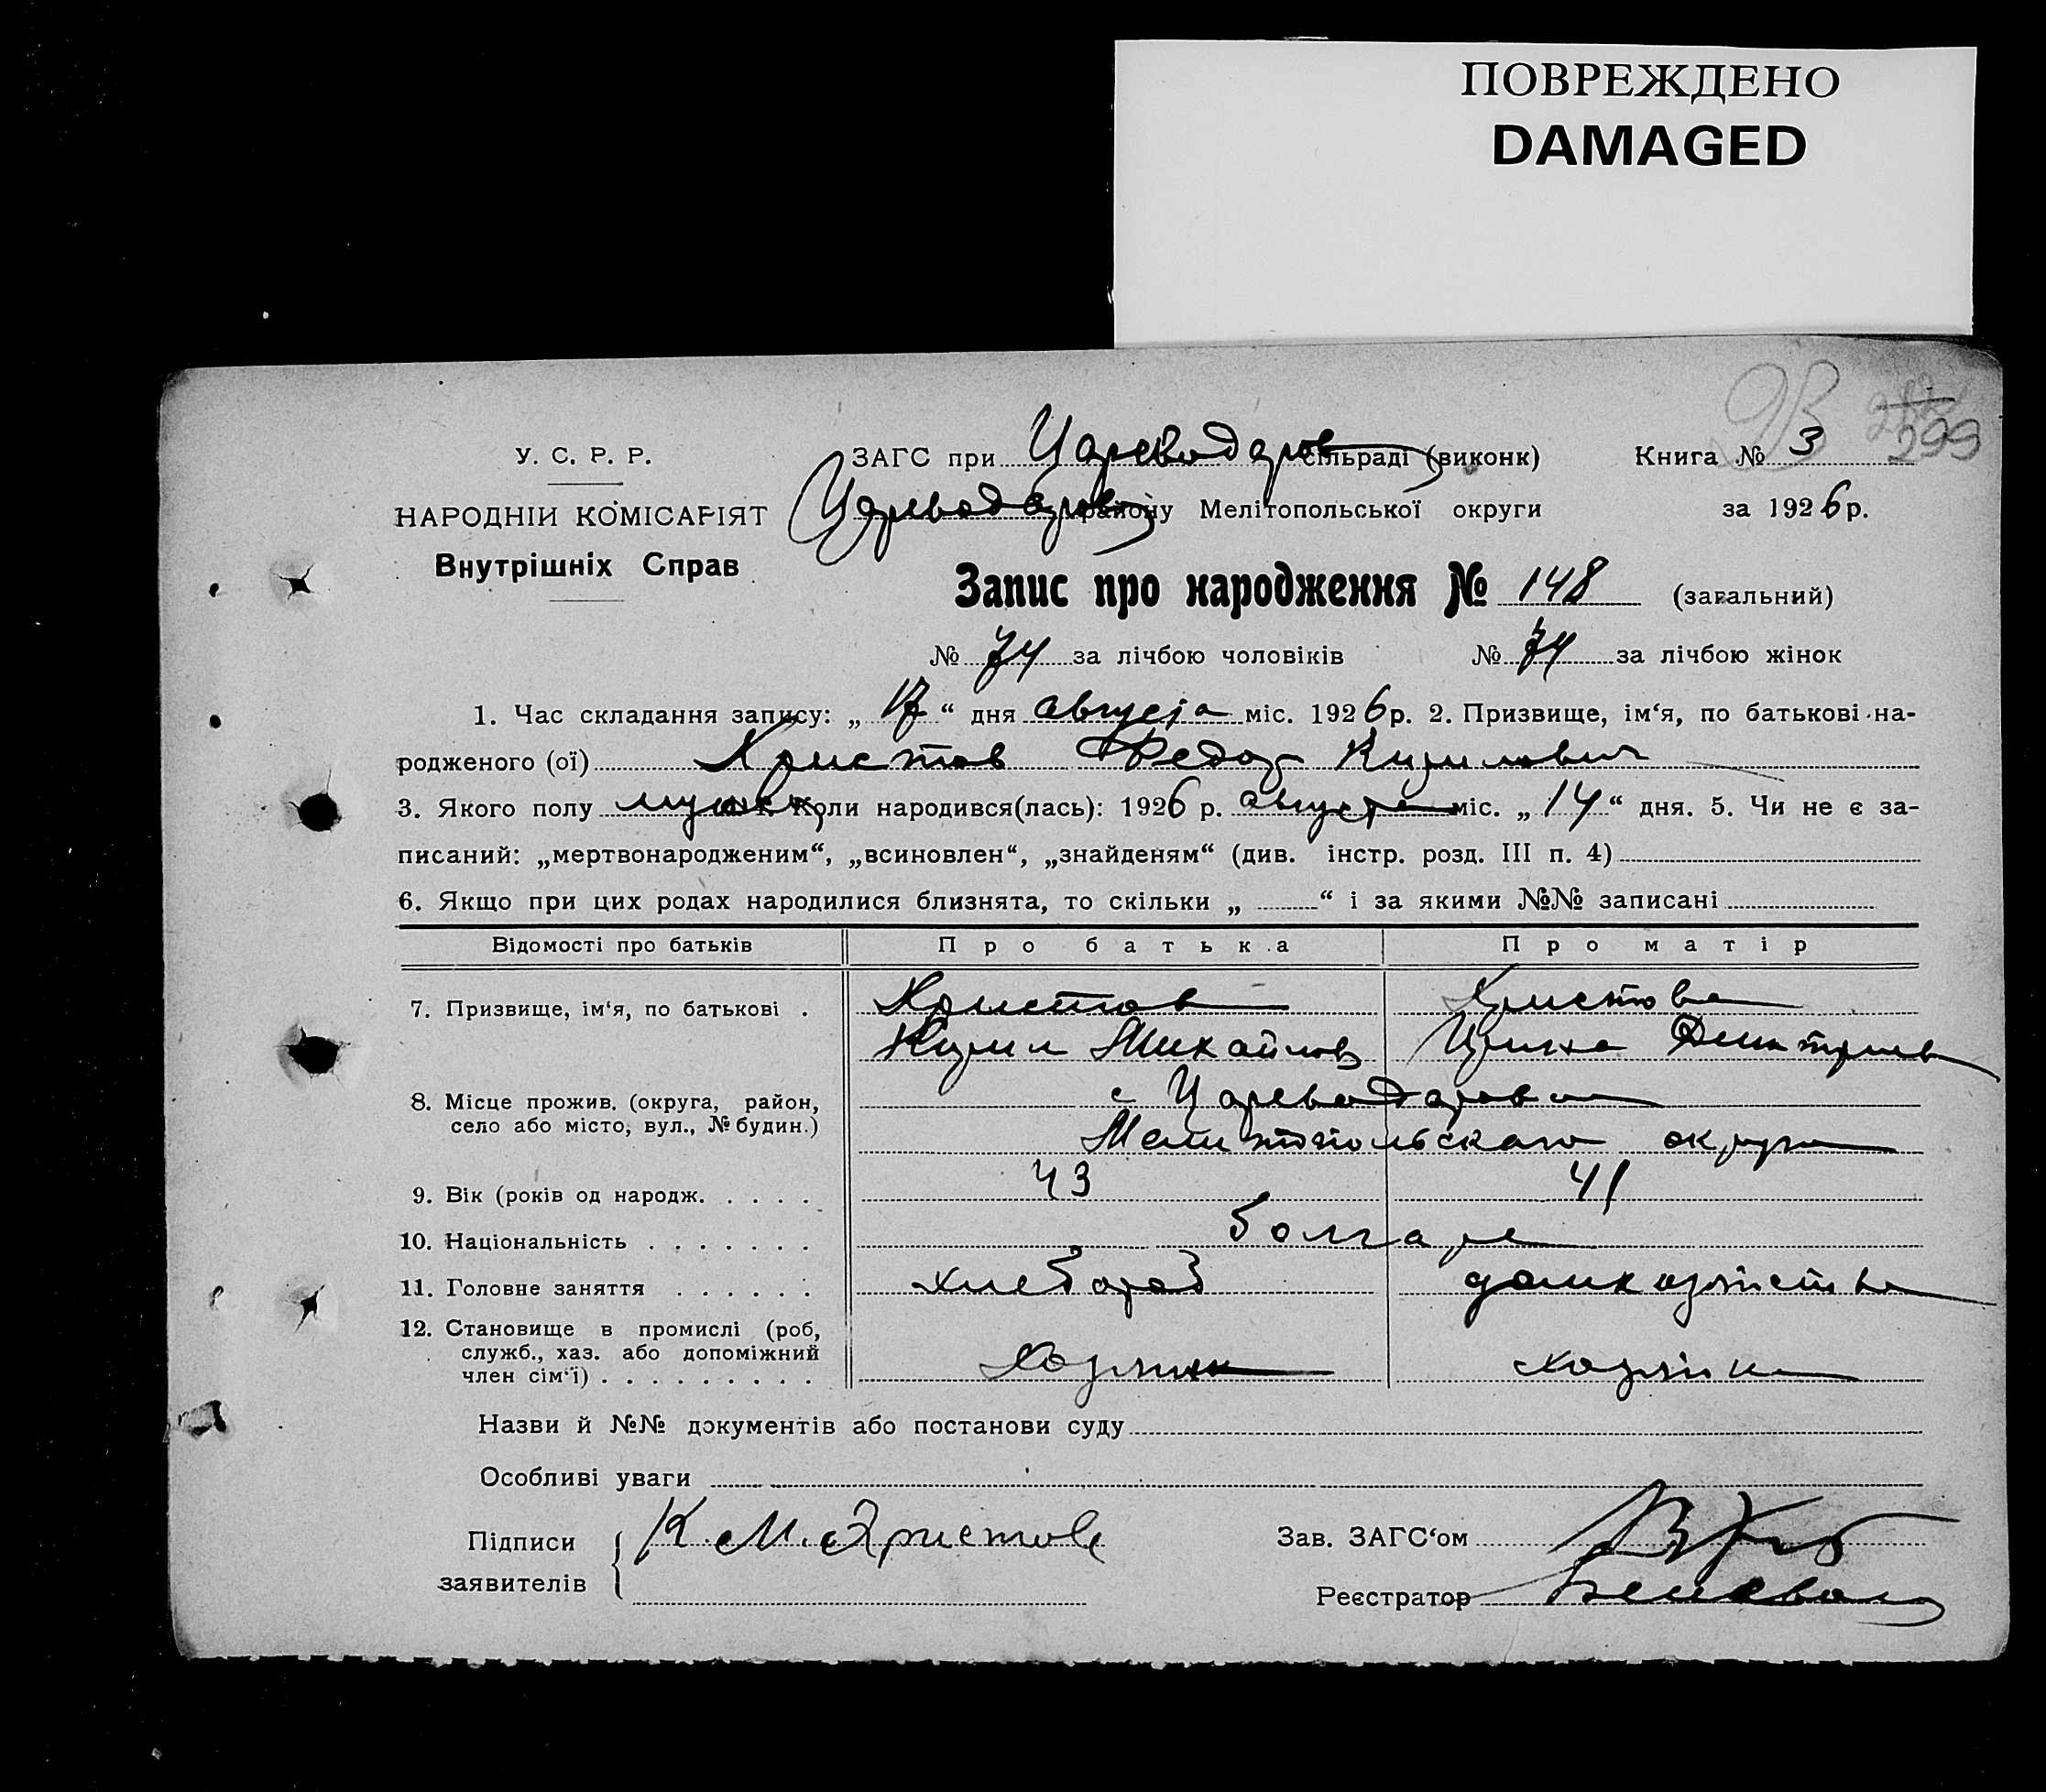 ПОВРЕЖДЕНО
DAMAGED
299
У. С. Р. Р.
ЗАГС при Цареводаров сільраді (виконк)
Книга № 3
НАРОДНІЙ КОМІСАРІЯТ
Цареводаров району Мелітопольської округи
за 1926 р.
Внутрішніх Справ
Запис про народження № 148 (загальний)
№ 74 за лічбою чоловіків № 74 за лічбою жінок
1. Час складання запису: „ 17 “ дня августа міс. 1926 р. 2. Призвище, ім‘я, по батькові на-
родженого (ої) Христов Федор Кирилович
3. Якого полу мужс 4. Коли народився(лась): 1926 р. августа міс. „ 14 “ дня. 5. Чи не є за-
писаний: „мертвонародженим“, „всиновлен“, „знайденям“ (див. інстр. розд. III п. 4)
6. Якщо при цих родах народилися близнята, то скільки „ “ і за якими №№ записані
Відомості про батьків Про батька Про матір
7. Призвище, ім‘я, по батькові . Христов Христова
Кирил Михайлов Ирина Дмитриев
8. Місце прожив. (округа, район, село або місто, вул., № будин.) с Цареводаровка
Мелитопольскаго округа
9. Вік (років од народж. . . . . 43 41
10. Національність . . . . . . . болгаре
11. Головне заняття . . . . . . хлебороб домхозяйства
12. Становище в промислі (роб, служб., хаз. або допоміжний член сім‘ї) . . . . . . . . . Хозяин хозяйка
Назви й №№ документів або постанови суду
Особливі уваги
Підписи заявителів К. М. Христов
Зав. ЗАГС‘ом
Реєстратор